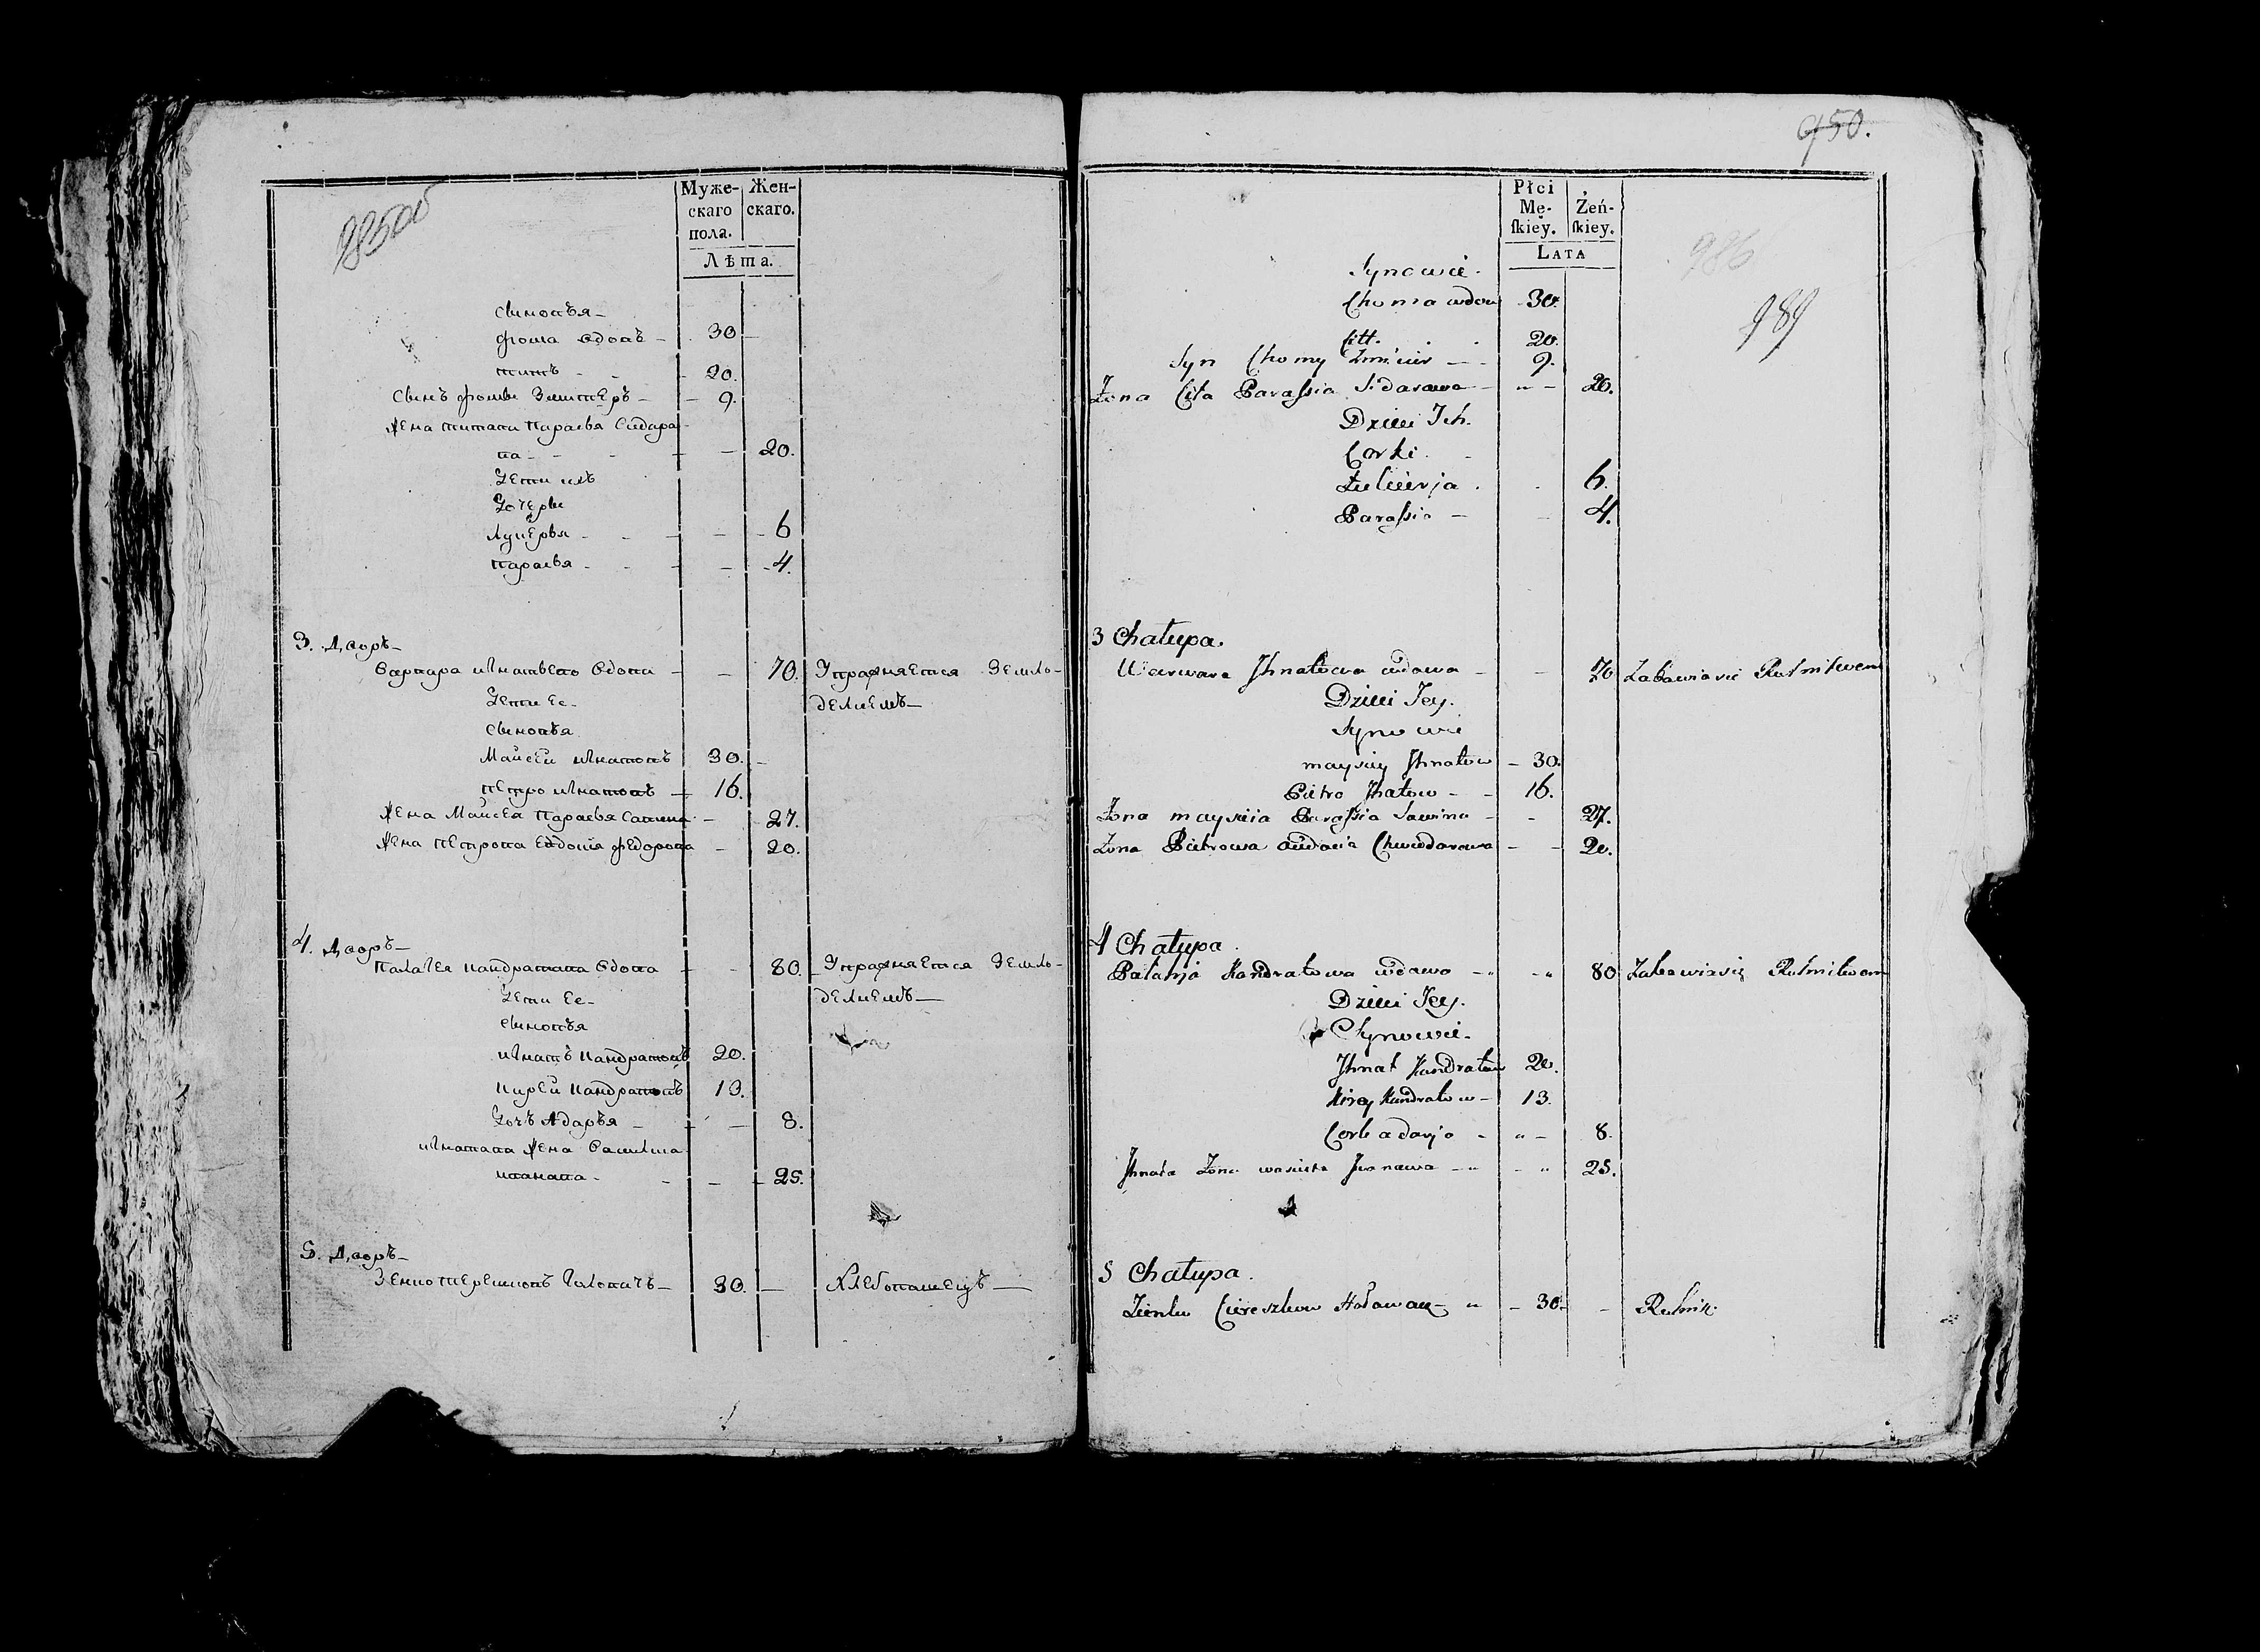 985об
Муже-
скаго
пола.
Жен-
скаго.
Лѣта.
Сыновья –
Фома вдовъ – 30 –
Титъ – – 20.
Сынъ Фомы Змитеръ – 9.
Жена Титава Парасья Сидара
ва – – – 20.
Дети ихъ
Дочеры
Луцерья – – – 6
Парасья – – – 4.
3. Дворъ –
Варвара Игнатьева вдова – – 70. Упражняется Земле-
Дети Ее – делиемъ –
Сыновья
Майсей Игнатовъ 30. –
Петро Игнатовъ – 16.
Жена Майсея Парасья Савина – 27.
Жена Петрова Евдокия Федорова – 20.
4. Дворъ –
Палагея Кандратава вдова – – 80. Упражняется Земле-
Дети Ее – делиемъ –
Сыновья
Игнатъ Кандратовъ 20.
Кирей Кандратовъ 13.
Дочъ Адарья – – – 8.
Игната Жена Василиса
Иванава – – – 25.
5. Дворъ –
Зенко Терешковъ Галовачъ – 30. – Хлебопашецъ –
950.
Płci
Mę-
ſkiey.
Żeń-
ſkiey.
Lata
986
989
Synowie.
Choma wdow 30.
Citt. . . 20.
Syn Chomy Zmicier – – 9.
Żona Cita Parassia Sidarawa – " – 20.
Dzieci Ich.
Corki.
Łucierja . . 6.
Parassia – – 4.
3 Chałupa.
Warwara Ihnatowa wdowa – – 70 Zabawia sie Rolnitwem
Dzieci Jey.
Synowie
maysiey Ihnatow – 30.
Pietro Ihatow – – 16.
Żona maysieia Parassia Sawina – – 27.
Żona Pietrowa Chwiodarowa – – 20.
4 Chałupa.
Palahja Kandratowa wdowa – " – " 80 Zabawia się Rolnitwom
Dzieci Jey.
Synowie.
Ihnat Kandratow 20.
Kirey Kandratow – 13.
Corka adarja – " – 8.
Ihnata Żona wasilisa Iwanawa – " – " 25.
5 Chałupa.
Zienko Ciereszkow Hoławacz – " – 30. – Rolnik.